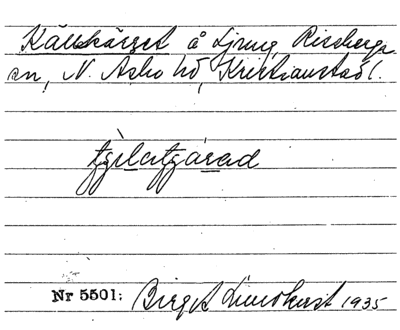 Källekärret å Ljung, Riseberga
sn, N. Åsbo hd, Kristianstad l.
Nr 5501: Birgit Lindkvist 1935